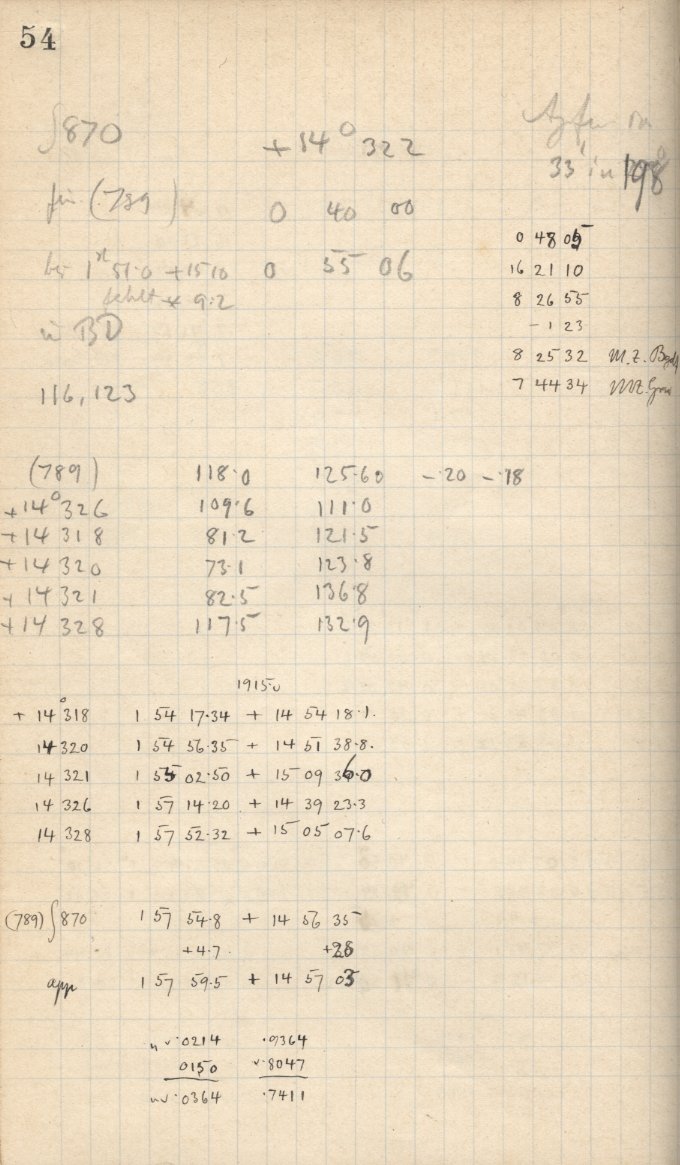 54
∫870 +14° 322
33' in 198
für (789) 0 40 00
bei 1ʰ 51.0 +15 10 0 55 06
fehlt * 9.2
in BD
116, 123
0 48 05
16 21 10
8 26 55
- 1 23
8 25 32 M.Z.
7 44 34 MZ
(789) 118.0 125.60 -.20 -.18
+14° 326 109.6 111.0
+14 318 81.2 121.5
+14 320 73.1 123.8
+14 321 82.5 136.8
+14 328 117.5 132.9
1915.0
+ 14° 318 1 54 17.34 + 14 54 18.1.
14 320 1 54 56.35 + 14 51 38.8.
14 321 1 55 02.50 + 15 09 36.0
14 326 1 57 14.20 + 14 39 23.3
14 328 1 57 52.32 + 15 05 07.6
(789) ∫870 1 57 54.8 + 14 56 35
+4.7. +28
app 1 57 59.5 + 14 57 03
n v.0214 .9364
0150 v.8047
nv.0364 .7411